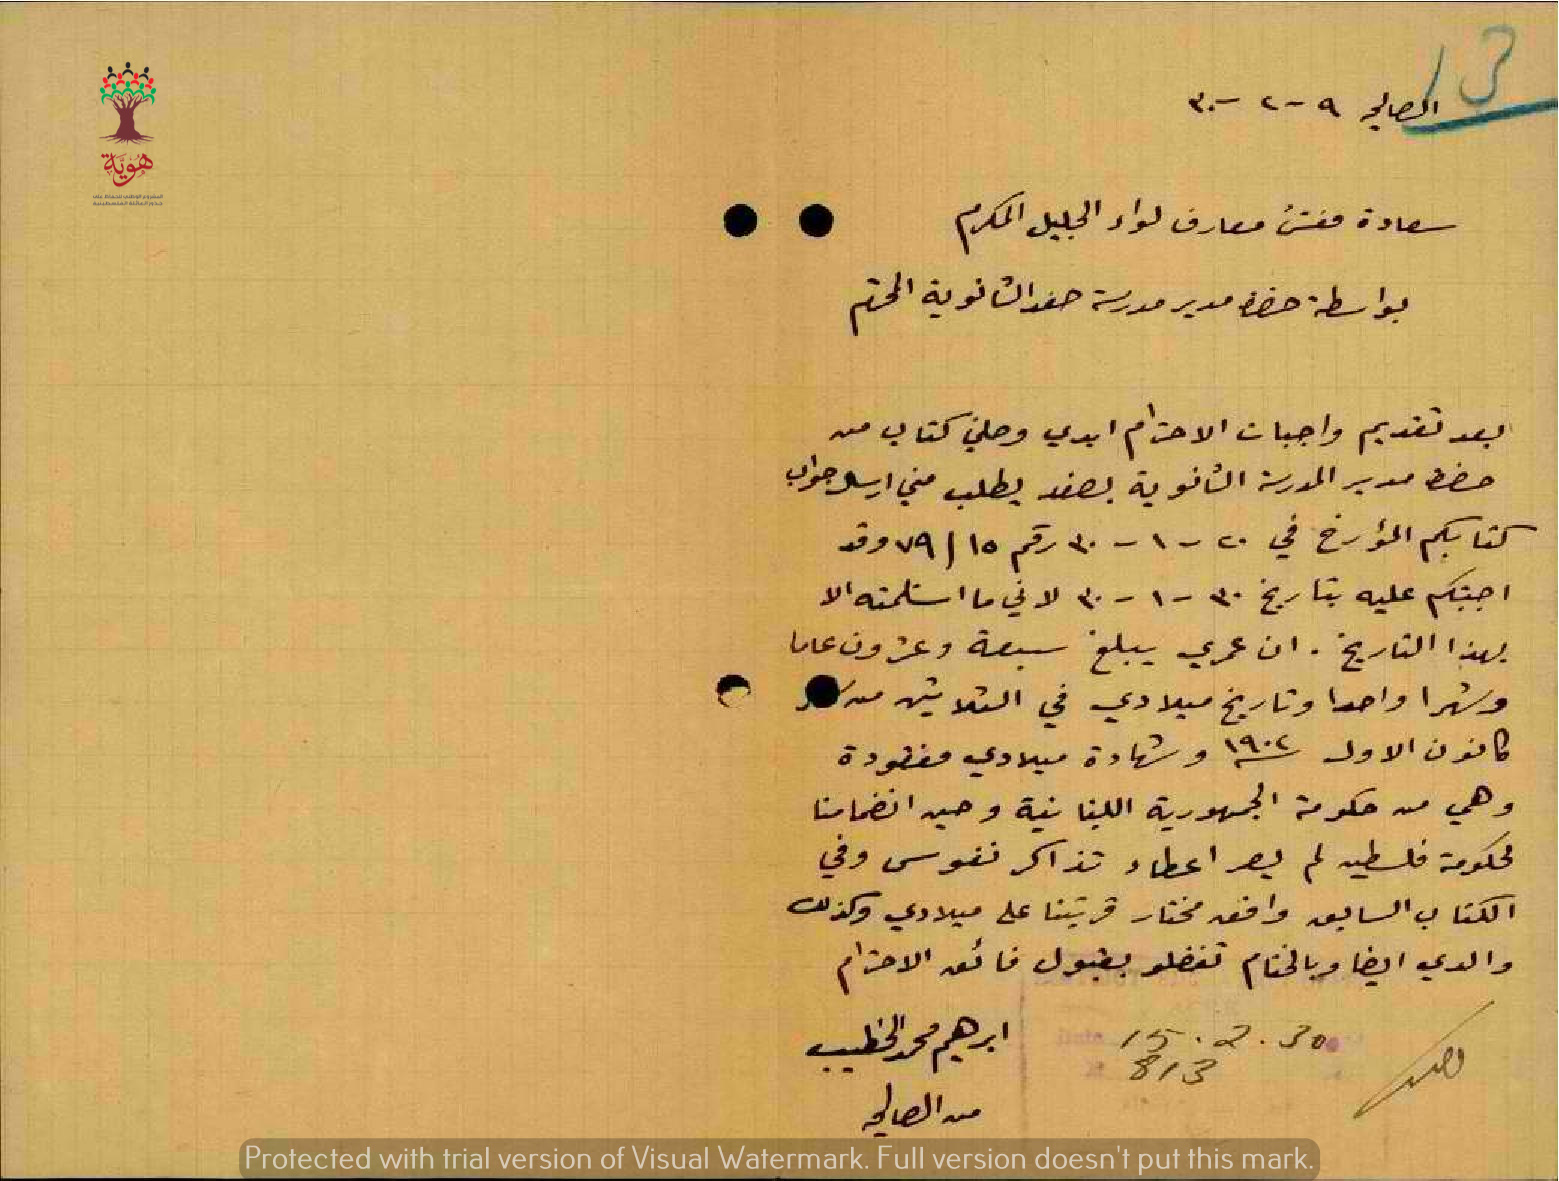 13
الصالحه ٩-٢-٣٠
هُوِيَّة
المشروع الوطني للحفاظ على
جذور العائلة الفلسطينية
سعادة مفتش معارف لواء الجليل المكرم
بواسطة حضرة مدير مدرسة صفد الثانوية المحترم
بعد تقديم واجبات الاحترام ابدي وصلني كتاب من
حضرة مدير المدرسة الثانوية بصفد يطلب مني ارسال جواب
كتابكم المؤرخ في ٢٠-١-٣٠ رقم ٧٩/١٥ وقد
اجبتكم عليه بتاريخ ٣٠-١-٣٠ لاني ما استلمته الا
بهذا التاريخ. ان عمري يبلغ سبعة وعشرون عاما
وشهرا واحدا وتاريخ ميلادي في الثلاثين من
كانون الاول سنة ١٩٠٢ وشهادة ميلادي مفقودة
وهي من حكومة الجمهورية اللبنانية وحين انضمامنا
لحكومة فلسطين لم يصر اعطاء تذاكر نفوس وفي
الكتاب السابق وافق مختار قريتنا على ميلادي وكذلك
والدي ايضا وبالختام تفضلو بقبول فائق الاحترام
ابرهيم محمد الخطيب
من الصالحه
15.2.30
813
Protected with trial version of Visual Watermark. Full version doesn't put this mark.